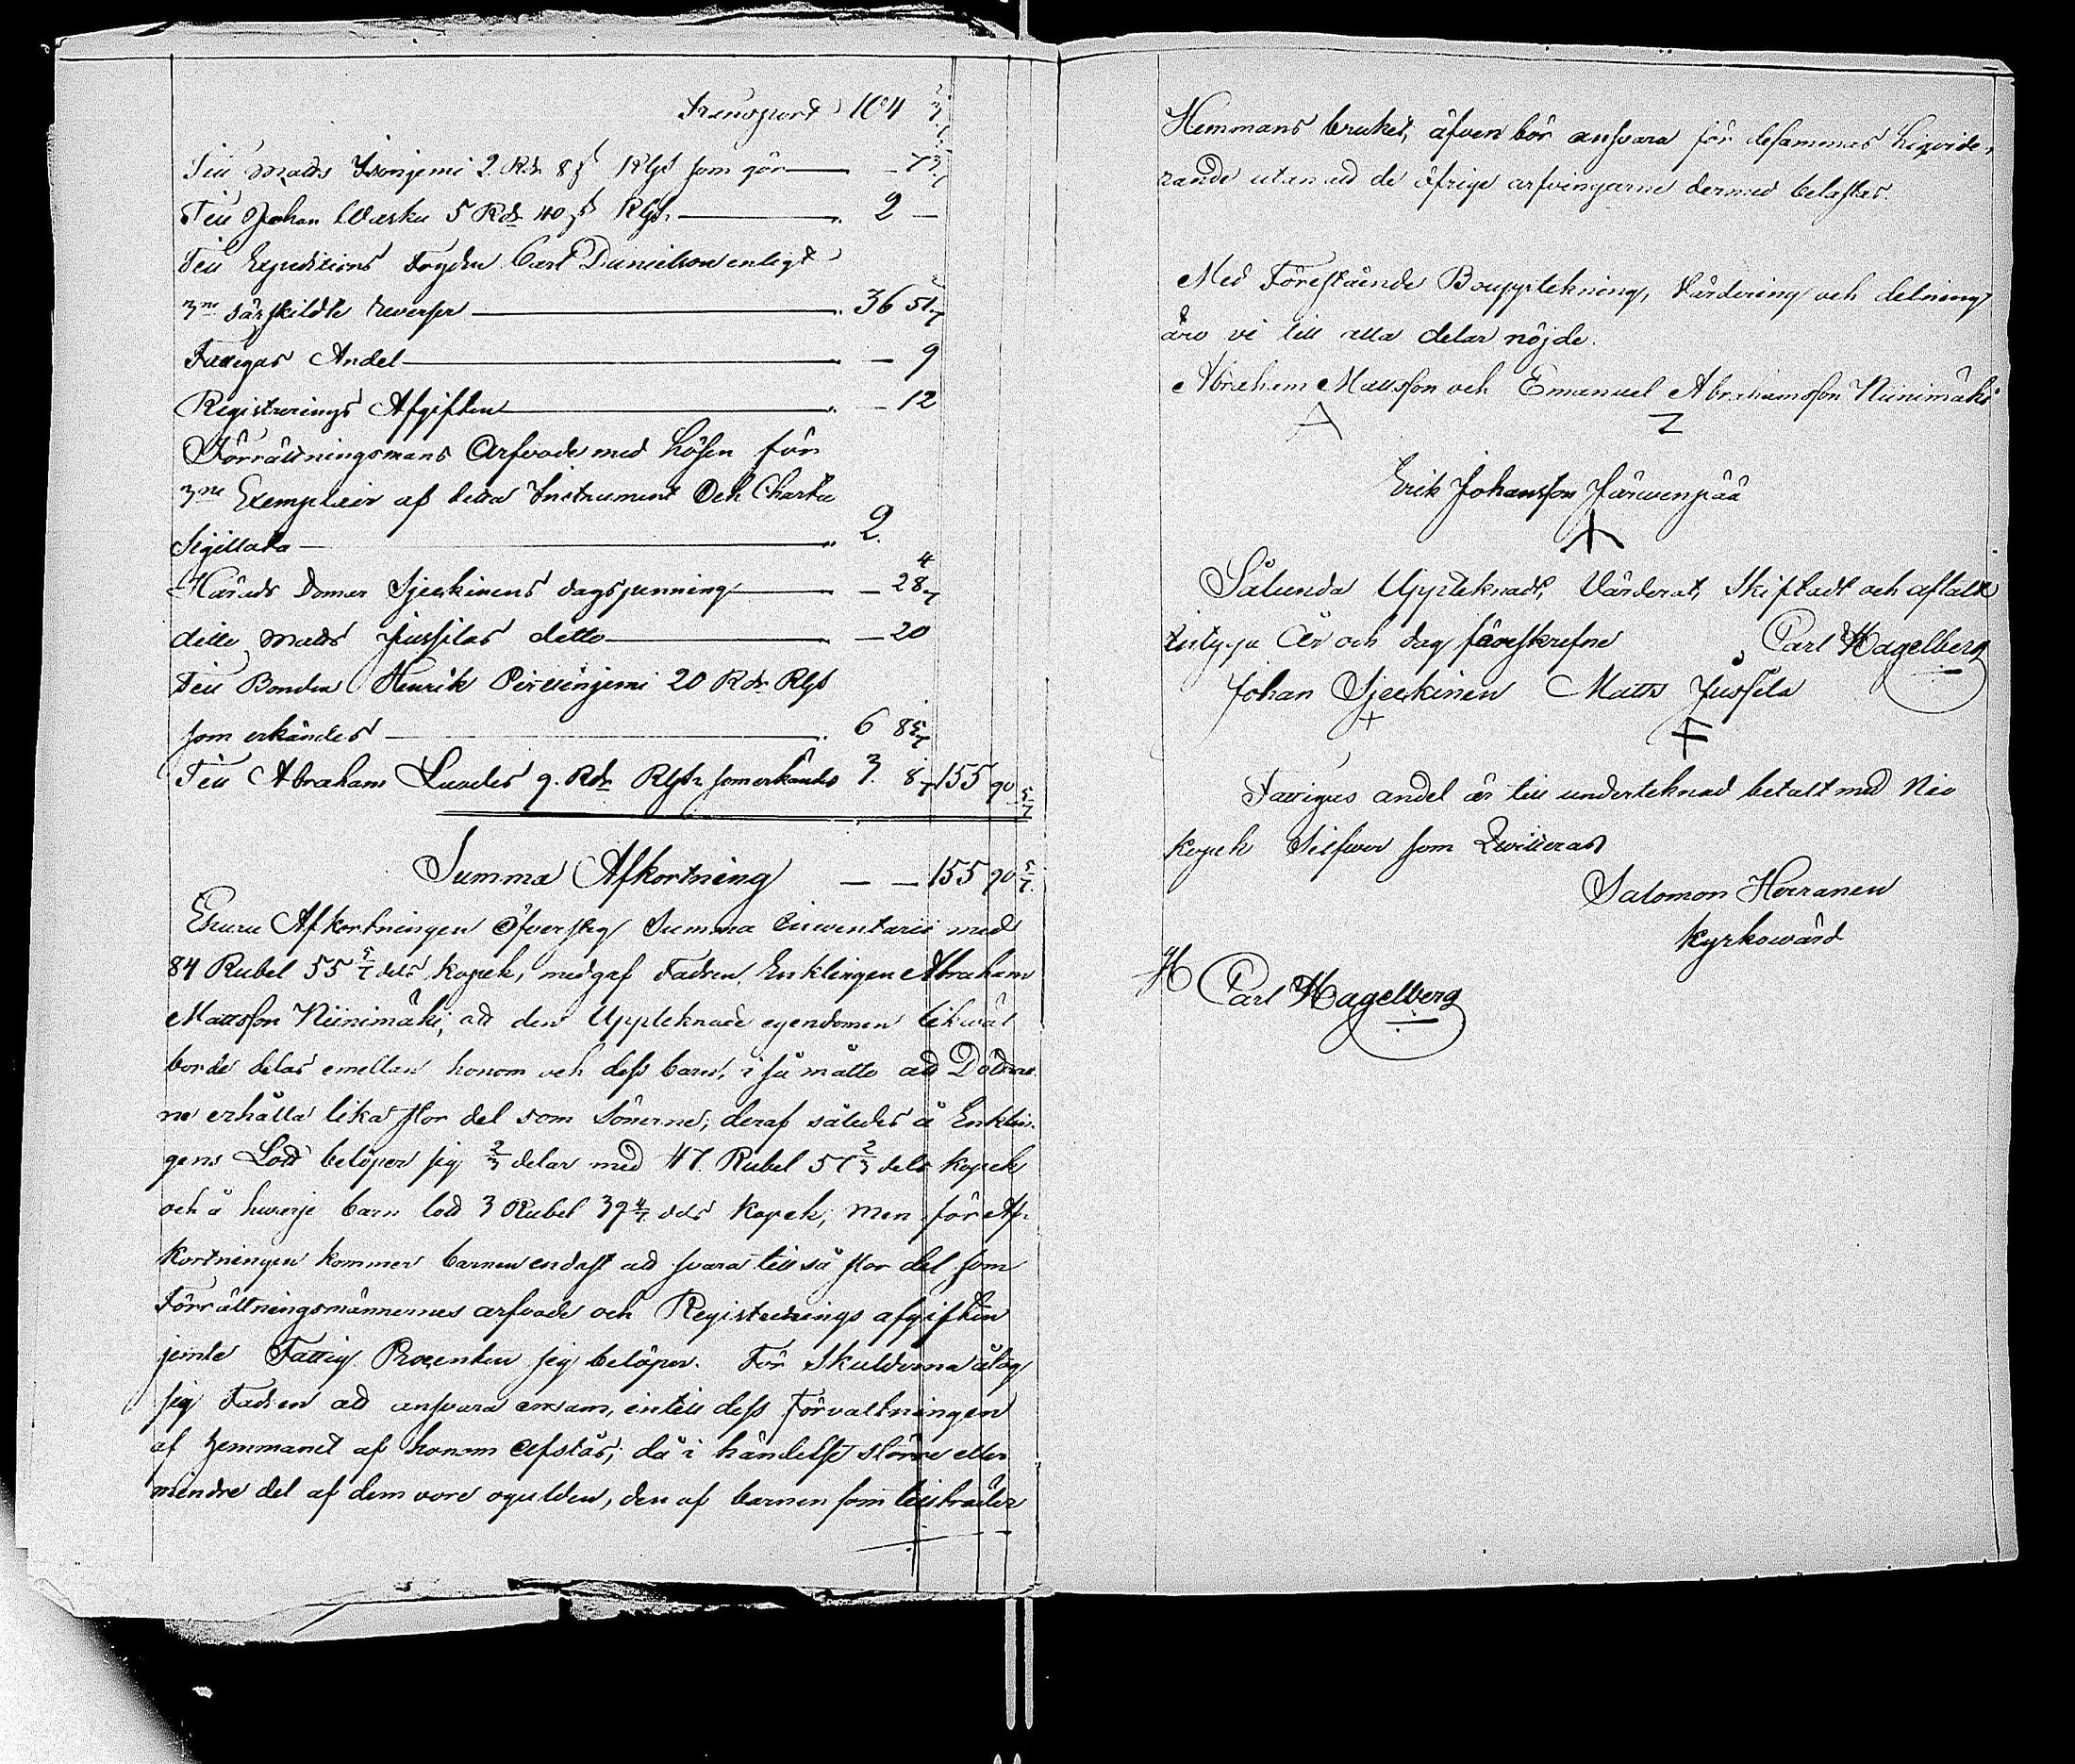 Transport 104
Till Matts Isoniemi 2 Rdr 8 s Rgs som gör — 7
Till Johan Wasku 5 Rdr 40 s Rgs. 2 —
Till Expeditions Fogden Carl Danielson enligt
3ne särskildte reverser 36 51
Fattigas Andel — 9
Registrerings Afgiften — 12
Förrättningsmans Arfvode med Lösen för
3ne Exemplair af detta Instrument Och Charta
Sigillata 2.
Härads Domar Sjeckinens dagspenning — 28 4/7
dito Matts Jussilas detto — 20
Till Bonden Henrik Perttunjemi 20 Rdr Rgs
som erkändes 6 85
Till Abraham Luades 9. Rdr Rgs som erkändes 3. 8 155 90 5/7
Summa Afkortning — — 155 90 5/7.
Ehuru Afkortningen Öfverstig Summa Inventarii med
84 Rubel 55 5/7 dels Kopek, medgaf Fadren, Enklingen Abraham
Mattsson Niinimäki, att den Uppteknade egendomen likwäl
borde delas emellan honom och dess barn, i så måtto att Döttrar
ne erhålla lika stor del som Sönerne; deraf således å Enklin-
gens Lott belöper sig 2/3 delar med 47. Rubel 57 2/3 dels Kopek
och å hwarje barn lott 3 Rubel 39 4/7 dels Kopek; men för Af-
kortningen kommer barnen endast att svara till så stor del som
Förrättningsmännernes arfvode och Registrerings afgiften
jemte Fattig Procenten sig belöper. För Skulderna åtog
sig Fadren att ansvara ensam, intill dess Förvaltningen
af hemmanet af honom Afstås; då i händelse större eller
mindre del af dem vore ogulden, den af barnen som tillträder
Hemmans bruket, äfven bör ansvara för desammas Liqvide-
rande utan att de öfrige arfvingarne dermed belastas.
Med Förestående Bouppteckning, Värdering och delning
äro vi till alla delar nöjde.
Abraham Mattsson och Emanuel Abrahamsson Niinimäki
Erik Johansson Järwenpää
Sålunda Upptecknadt, Värderat, Skiftadt och aftalt
betyga År och dag föreskrefne Carl Hagelberg
Johan Sjeckinen Matts Jussila
Fattigas andel är till undertecknad betalt med Nio
kopek Silfwer som Qvitteras
Salomon Herranen
Kyrkowärd
Carl Hagelberg